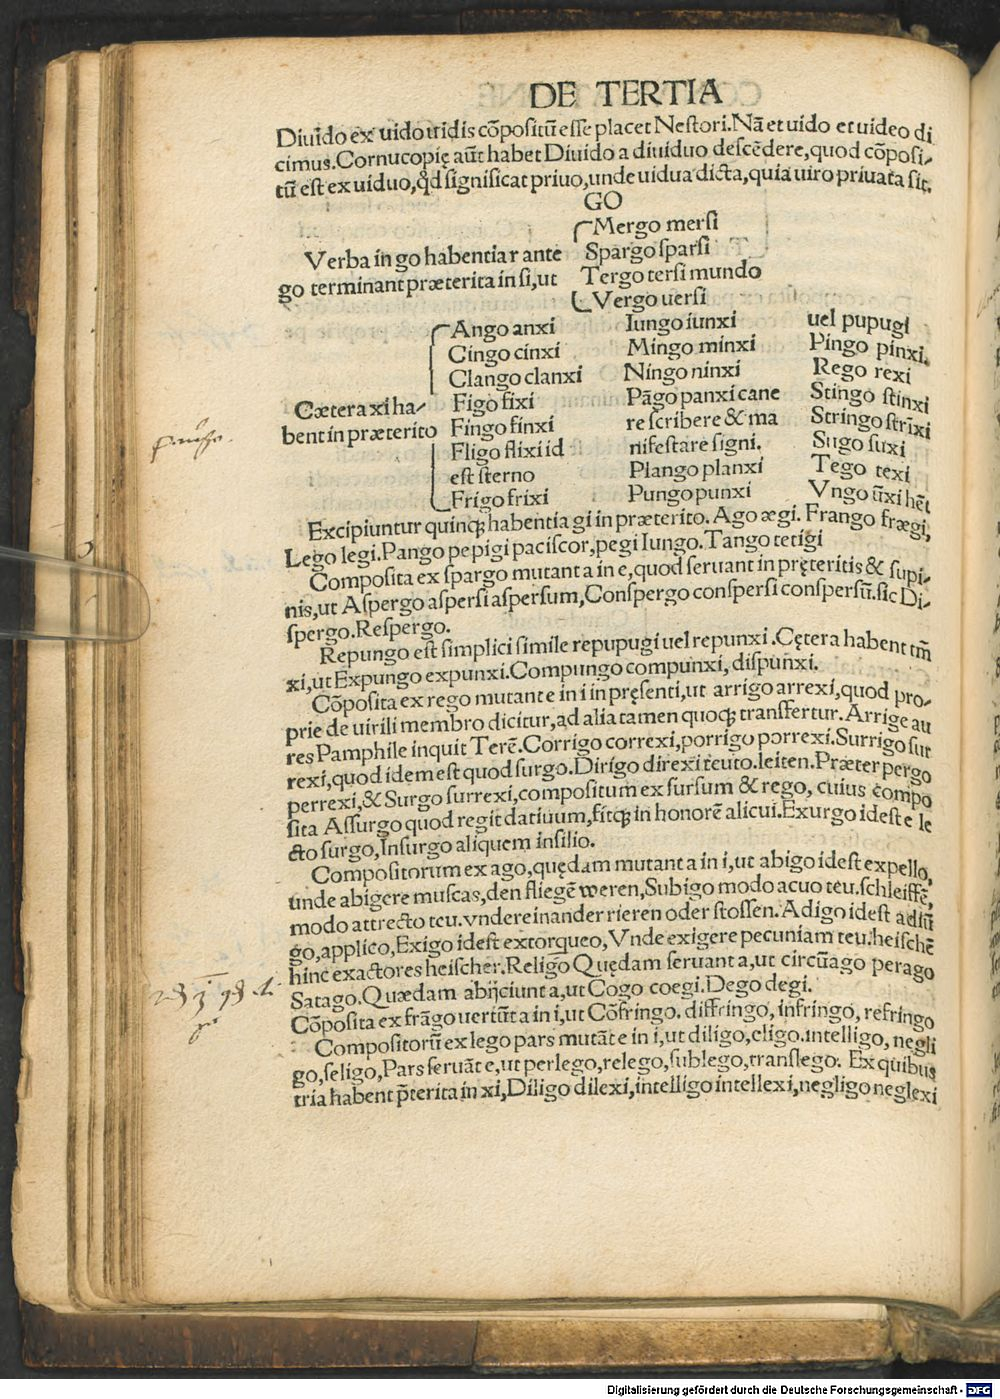 DE TERTIA
Diuido ex uido uidis cōpositū esse placet Nestori. Nā et uido et uideo di
cimus. Cornucopię aūt habet Diuido a diuiduo descēdere, quod cōposi-
tū est ex uiduo, qd significat priuo, unde uidua dicta, quia uiro priuata sit.
GO
Mergo mersi
Verba in go habentia r ante Spargo sparsi
go terminant præterita in si, ut Tergo tersi mundo
Vergo uersi
Ango anxi Iungo iunxi uel pupugi
Cingo cinxi Mingo minxi Pingo pinxi.
Clango clanxi Ningo ninxi Rego rexi
Cætera xi ha- Figo fixi Pāgo panxi cane Stingo stinxi
bent in præterito Fingo finxi re scribere & ma Stringo strixi
Fligo flixi id nifestare signi. Sugo suxi
est sterno Plango planxi Tego texi
Frigo frixi Pungo punxi Vngo ūxi hēt
Excipiuntur quinq; habentia gi in præterito. Ago ægi. Frango frægi,
Lego legi. Pango pepigi paciscor, pegi Iungo. Tango tetigi
Composita ex spargo mutant a in e, quod seruant in pręteritis & supi-
nis, ut Aspergo aspersi aspersum, Conspergo conspersi conspersū. sic Di-
spergo. Respergo.
Repungo est simplici simile repupugi uel repunxi. Cętera habent tm̄
xi, ut Expungo expunxi. Compungo compunxi, dispunxi.
Cōposita ex rego mutant e in i in pręsenti, ut arrigo arrexi, quod pro-
prie de uirili membro dicitur, ad alia tamen quoq; transfertur. Arrige au
res Pamphile inquit Terē. Corrigo correxi, porrigo porrexi. Surrigo sur
rexi, quod idem est quod surgo. Dirigo direxi teuto. leiten. Præter pergo
perrexi, & Surgo surrexi, compositum ex sursum & rego, cuius cōmpo
sita Assurgo quod regit datiuum, fitq; in honorē alicui. Exurgo idest e le
cto surgo, Insurgo aliquem insilio.
Compositorum ex ago, quędam mutant a in i, ut abigo idest expello,
unde abigere muscas, den fliegē weren, Subigo modo acuo teu. schleiffē,
modo attrecto teu. vndereinander rieren oder stossen. Adigo idest adiū
go, applico, Exigo idest extorqueo, Vnde exigere pecuniam teu. heischē
hinc exactores heischer. Religo Quędam seruant a, ut circūago perago
Satago. Quædam abijciunt a, ut Cogo coegi. Dego degi.
Cōposita ex frāgo uertūt a in i, ut Cōfringo. diffringo, infringo, refringo
Compositorū ex lego pars mutāt e in i, ut diligo, eligo. intelligo, negli
go, seligo, Pars seruāt e, ut perlego, relego, sublego, translego. Ex quibus
tria habent p̄terita in xi, Diligo dilexi, intelligo intellexi, negligo neglexi
Digitalisierung gefördert durch die Deutsche Forschungsgemeinschaft - DFG